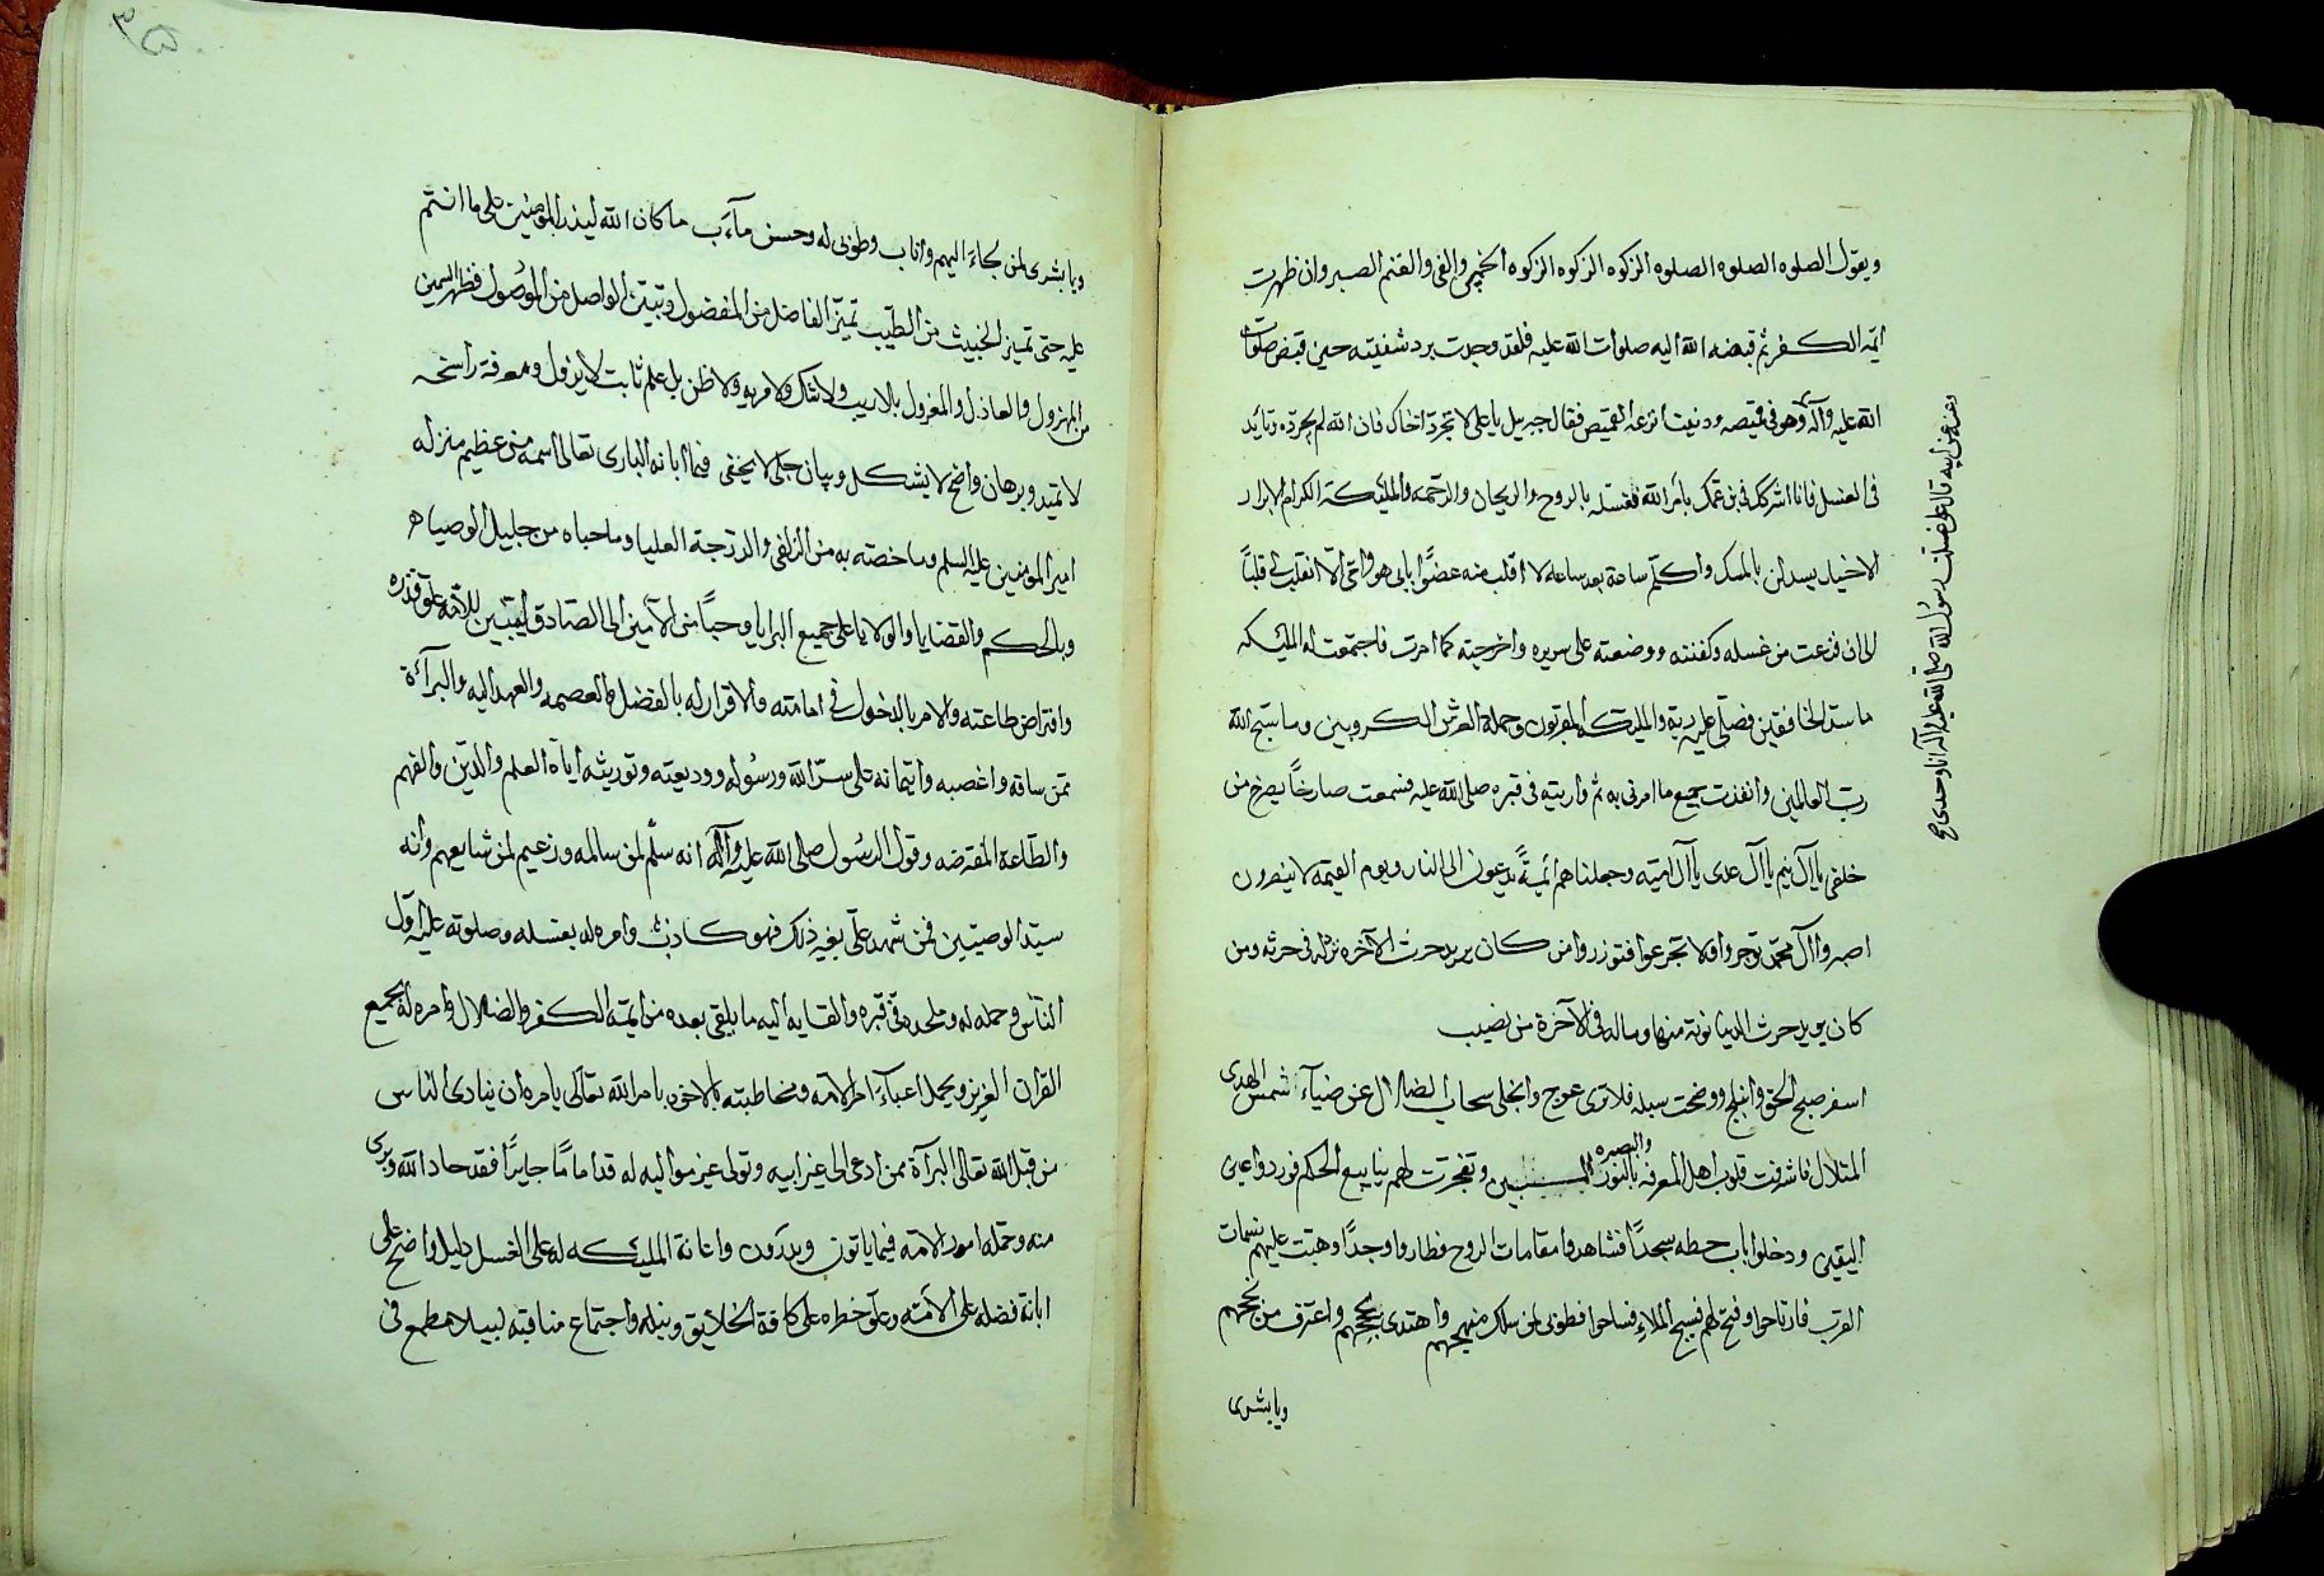 ويقول الصلوه الصلوه الصلوه الزكوه الزكوه الزكوه الخمس والفى والغنم الصبر وان ظهرت
ايمه الكفر ثم قبضه الله اليه صلوات الله عليه فلقد وجدت برد شفتيه حين قبض صلوات
الله عليه وآله وهو فى قميصه ودنيت انزع القميص فقال جبريل يا على لا تجرد اخاك فان الله لم يجرده وتايد
فى الغسل فانا اشركك فى بن عمك بأمر الله فغسلته بالروح والريحان والرحمه والمليكة الكرام الابرار
الاخيار بالمسك واكلم ساعة بعد ساعه لا اقلب منه عضوًا بابى هو وامى الا انقلب لى قلبًا
الى ان فرغت من غسله وكفنته ووضعته على سريره واخرجته كما امرت فاجتمعت له المليكه
ما سد الخافقين فصلى عليه ربه والمليكه المقربون وحملة العرش الكروبين وما سبح الله
رب العالمين وانفذت جميع ما امرنى به ثم واريته فى قبره صلى الله عليه فسمعت صارخًا يصرخ من
خلفى يا آل تيم يا آل عدى يا آل اميه وجعلناهم أيمةً يدعون الى النار ويوم القيمه لا ينصرون
اصبروا آل محمد توجروا ولا تجزعوا فتوزروا من كان يريد حرث الآخره نزد له فى حرثه ومن
كان يريد حرث الدنيا نوته منها وماله فى الآخرة من نصيب
اسفر صبح الحق وانبلج ووضحت سبله فلا ترى عوج وانجلى سحاب الضلال عن ضياء شمس الهدى
المتلال فاشرقت قلوب اهل المعرفه والبصيره بالنور المبين وتفجرت لهم ينابيع الحكم فوردوا عين
اليقين ودخلوا باب حطه سجدًا فشاهدوا مقامات الروح فطاروا وجدًا وهبت عليهم نسمات
القرب فارتاحوا وفتح لهم فسيح الملاء فساحوا فطوبى لمن سلك منهجهم واهتدى بحججهم واعترف من
ويا بشرى
وعنه عن ابيه قال على غسلت رسول الله صلى الله عليه وآله انا وحدى
٣٥
ويا بشرى لمن جاء اليهم واناب وطوبى له وحسن مآب ما كان الله ليذر المومنين على ما انتم
عليه حتى تميز الخبيث من الطيب تميز الفاضل من المفضول وتبين الواصل من الموصول فظهر السمين
من المهزول والعاذل والمعزول بلا ريب ولا شك ولا مريه ولا ظن بل علم ثابت لا يزول ومعرفة راسخه
لا تميد وبرهان واضح لا يشكل وبيان جلى لا يخفى فيما ابانه البارى تعالى اسمه من عظيم منزله
امير المومنين عليه السلم وما خصته به من الزلفى والدرجة العليا وما حباه من جليل الوصيا
وبالحكم والقضايا والولايا على جميع البرايا وحبًا من الامين الى الصادق ليتبين للامه علو قدره
وافتراض طاعته والامر بالدخول فى امامته والاقرار له بالفضل والعصمه والعهد اليه والبرآئة
ممن ساقه واغصبه وايتمانه على سر الله ورسوله ووديعته وتوريثه اياه العلم والدين والفهم
والطاعة المفترضه وقول الرسول صلى الله عليه وآله انه سلم لمن سالمه وزعيم لمن شايعهم وانه
سيد الوصيين فمن شهد على بغير ذلك فهو كاذب وامره له بغسله وصلوته عليه اول
الناس وحمله له وملحده فى قبره والقايه اليه ما يلقى بعده من ايمة الكفر والضلال وامره له بجميع
القران العزيز ويحمل اعباء امر الامه ومخاطبته بالاخوه بامر الله تعالى يامره ان ينادى الناس
من قبل الله تعالى البرآة ممن ادعى الى غير ابيه وتولى غير مواليه له قد اماما جايرًا فقد حاد الله وبرى
منه وحمله امور الامه فيما ياتون ويذرون واعانة المليكه له على الغسل دليل واضح على
ابانة فضله على الامه وعلو خطره على كافة الخلايق ونبله واجتماع مناقبه ليبلا مطمع فى